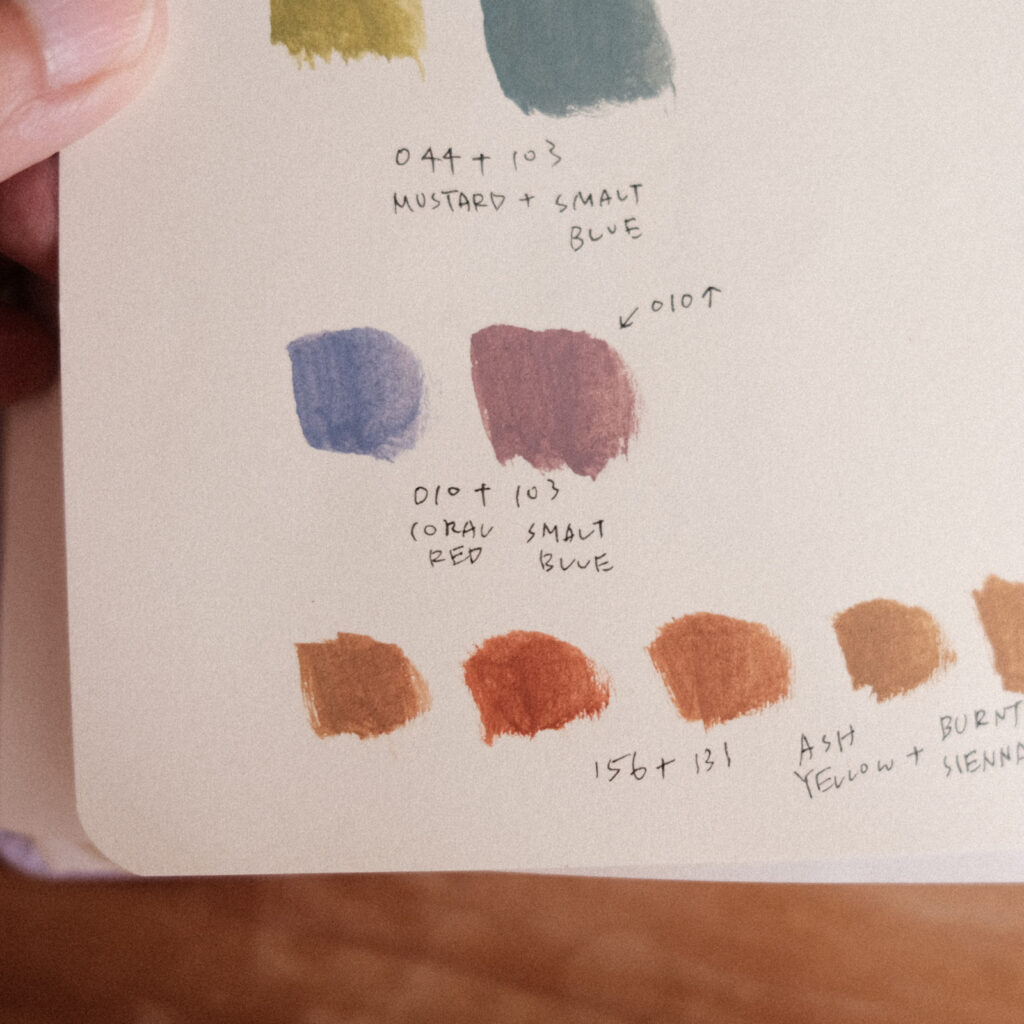 044 + 103
MUSTARD + SMALT
BLUE
↙ 010 ↑
010 + 103
CORAL SMALT
RED BLUE
156 + 131
ASH
YELLOW +
BURNT
SIENNA